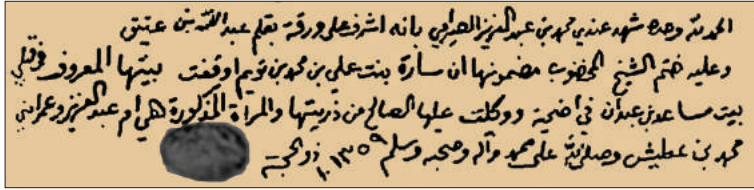 الحمد لله وحده شهد عندي محمد بن عبد العزيز الصرامي بانه اشرف على ورقة بقلم عبد الله بن عتيق
وعليه ختم الشيخ المخضوب مضمونها ان سارة بنت علي بن محمد بن تويم اوقفت بيتها المعروف قبلي
بيت مساعد بن عبدان في اضحية ووكلت عليها الصالح من ذريتها والمراة المذكورة هي ام عبد العزيز وعمر ابني
محمد بن عطيش وصلى الله على محمد وآله وصحبه وسلم ١٣٥٩ ذو الحجة